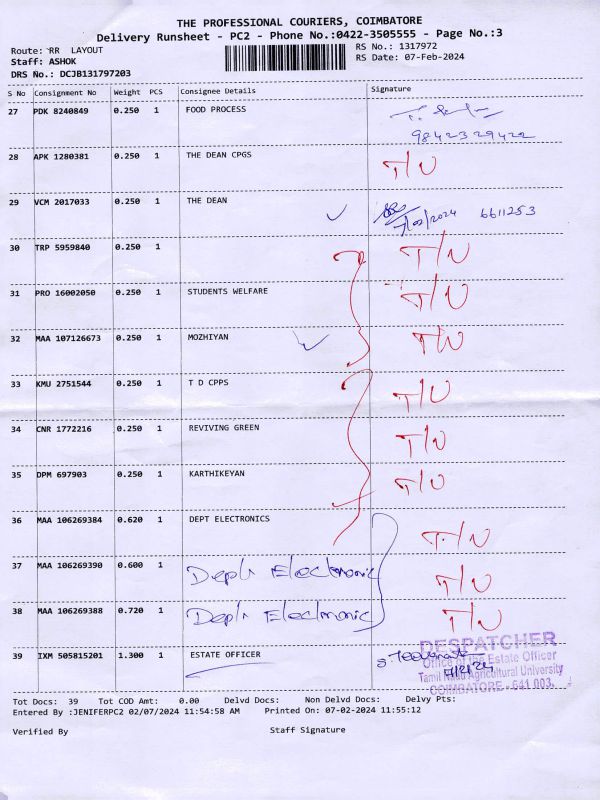 THE PROFESSIONAL COURIERS, COIMBATORE
Delivery Runsheet - PC2 - Phone No.:0422-3505555 - Page No.:3
Route: RR LAYOUT RS No.: 1317972
Staff: ASHOK RS Date: 07-Feb-2024
DRS No.: DCJB131797203
S No Consignment No Weight PCS Consignee Details Signature
27 PDK 8240849 0.250 1 FOOD PROCESS
9842329422
28 APK 1280381 0.250 1 THE DEAN CPGS T/N
29 VCM 2017033 0.250 1 THE DEAN 7/02/2024 6611253
30 TRP 5959840 0.250 1 T/N
31 PRO 16002050 0.250 1 STUDENTS WELFARE T/N
32 MAA 107126673 0.250 1 MOZHIYAN T/N
33 KMU 2751544 0.250 1 T D CPPS T/N
34 CNR 1772216 0.250 1 REVIVING GREEN T/N
35 DPM 697903 0.250 1 KARTHIKEYAN T/N
36 MAA 106269384 0.620 1 DEPT ELECTRONICS T/N
37 MAA 106269390 0.600 1 Dept. Electronic T/N
38 MAA 106269388 0.720 1 Dept. Electronic T/N
39 IXM 505815201 1.300 1 ESTATE OFFICER
DESPATCHER
Office of the Estate Officer
7/2/24
Tamil Nadu Agricultural University
COIMBATORE - 641 003.
Tot Docs: 39 Tot COD Amt: 0.00 Delvd Docs: Non Delvd Docs: Delvy Pts:
Entered By :JENIFERPC2 02/07/2024 11:54:58 AM Printed On: 07-02-2024 11:55:12
Verified By Staff Signature